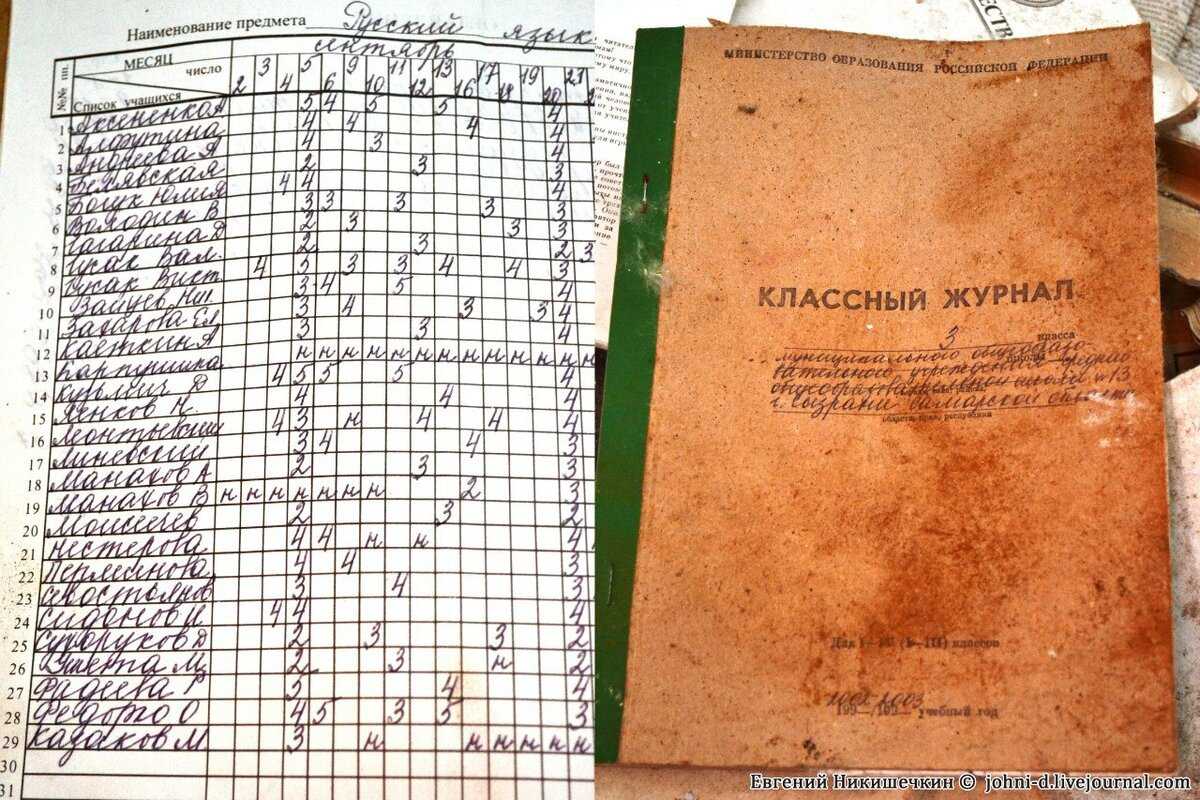 Наименование предмета Русский язык
сентябрь
МЕСЯЦ
число
Список учащихся
№№ пп.
2 3 4 5 6 9 10 11 12 13 16 17 18 19 20 23
1 Аксененко А 5 4 5 5 4
2 Алфутина 4 4 4 4
3 Андреева Я 4 3 4
4 Белявская 2 3 3
5 Богук Юлия 4 4 4
6 Володин В 3 3 3 3 3
7 Гагарина Д 2 3 3 3
8 Гусак Вал. 2 3 2 3
9 Гусак Викт 4 5 3 3 4 4 3
10 Зайцев Ни 3 4 5 4
11 Захарова Ел 3 4 3 3 4
12 Касткин А 3 3 4
13 Картушина н н н н н н н н н н н н
14 Курылич Ф 4 5 5 5 4
15 Ленков Н. 4 4 4
16 Монтывский 4 3 н 4 4 4
17 Миневский 3 4 4 3
18 Манахов А 2 3 3
19 Манахов В н н н н н н н 2 3
20 Моисеев 2 3 2
21 Нестерова 4 4 н н 4
22 Перминова 4 4 3
23 Севостьянов 3 4 3
24 Сидонов И 4 4 4
25 Сухоруков Д 2 3 3 2
26 М. 2 3 н 2
27 Фадеева Г 5 4 4
28 Федорко О 4 5 3 5 3
29 Казаков М. 3 н н н н н н
30
31
МИНИСТЕРСТВО ОБРАЗОВАНИЯ РОССИЙСКОЙ ФЕДЕРАЦИИ
КЛАССНЫЙ ЖУРНАЛ
3 класса
муниципального общеобразо-
вательного учреждения средней
общеобразовательной школы №13
г. Сызрани Самарской области
область, край, республика
Для I—III (I—III) классов
2002/2003 учебный год
Евгений Никишечкин © johni-d.livejournal.com